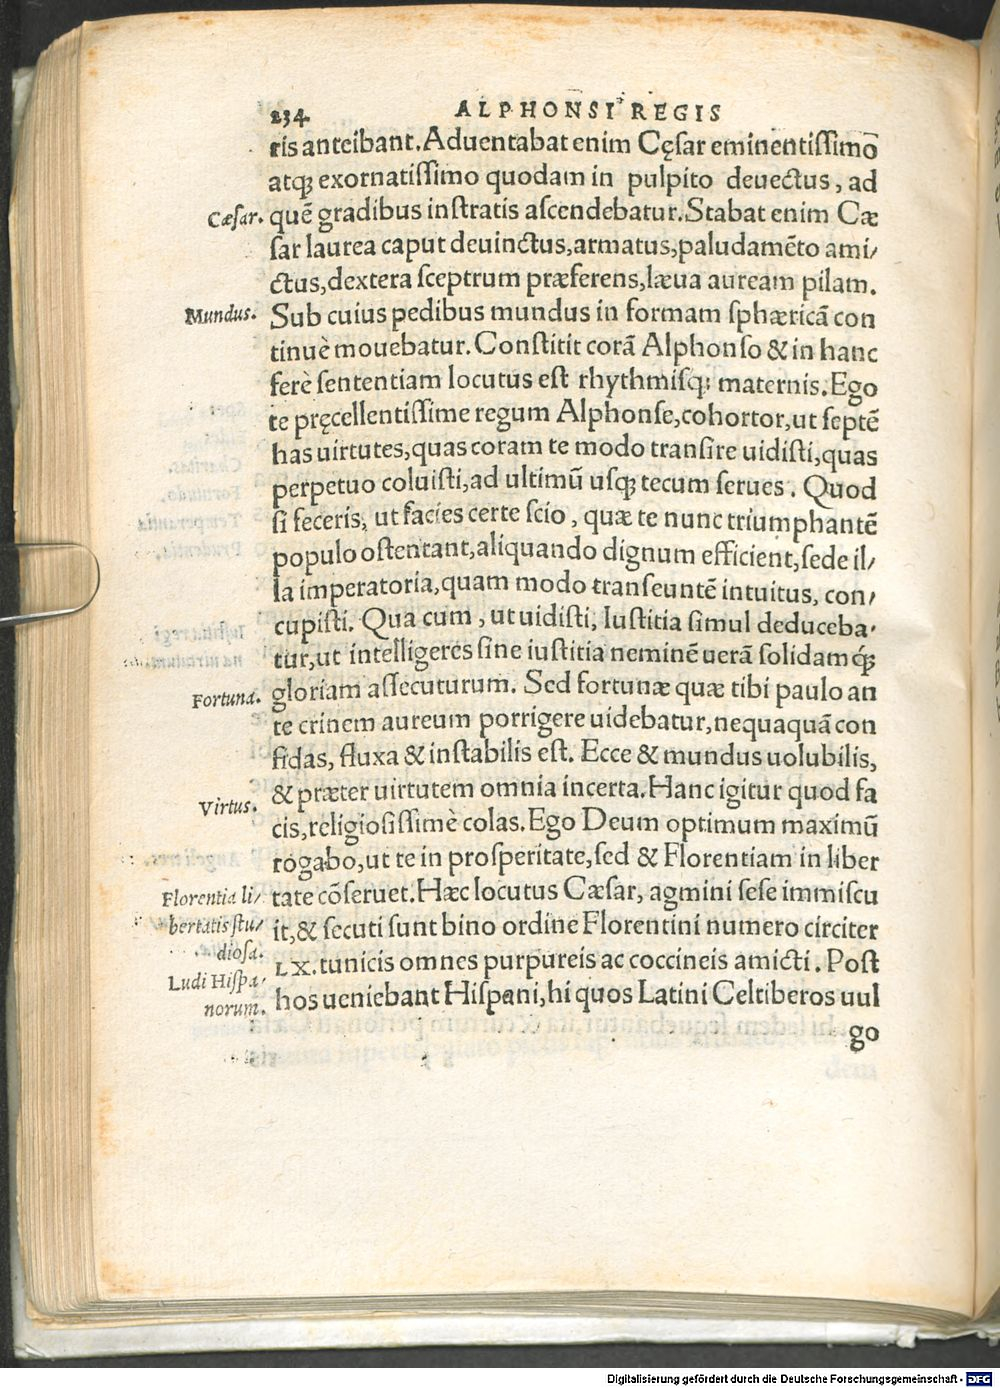 234 ALPHONSI REGIS
ris anteibant. Aduentabat enim Cęsar eminentissimo
atq; exornatissimo quodam in pulpito deuectus, ad
Cæsar. quẽ gradibus instratis ascendebatur. Stabat enim Cæ
sar laurea caput deuinctus, armatus, paludamẽto ami/
ctus, dextera sceptrum præferens, læua auream pilam.
Mundus. Sub cuius pedibus mundus in formam sphæricã con
tinuè mouebatur. Constitit corã Alphonso & in hanc
ferè sententiam locutus est rhythmisq; maternis. Ego
te pręcellentissime regum Alphonse, cohortor, ut septẽ
has uirtutes, quas coram te modo transire uidisti, quas
perpetuo coluisti, ad ultimũ usq; tecum serues. Quod
si feceris, ut facies certe scio, quæ te nunc triumphantẽ
populo ostentant, aliquando dignum efficient, sede il/
la imperatoria, quam modo transeuntẽ intuitus, con/
cupisti. Qua cum, ut uidisti, Iustitia simul deduceba/
tur, ut intelligeres sine iustitia neminẽ uerã solidamq́;
Fortuna. gloriam assecuturum. Sed fortunæ quæ tibi paulo an
te crinem aureum porrigere uidebatur, nequaquã con
fidas, fluxa & instabilis est. Ecce & mundus uolubilis,
Virtus. & præter uirtutem omnia incerta. Hanc igitur quod fa
cis, religiosissimè colas. Ego Deum optimum maximũ
rogabo, ut te in prosperitate, sed & Florentiam in liber
Florentia li/ tate cõseruet. Hæc locutus Cæsar, agmini sese immiscu
bertatis stu/ it, & secuti sunt bino ordine Florentini numero circiter
diosa. LX. tunicis omnes purpureis ac coccineis amicti. Post
Ludi Hispa/
norum. hos ueniebant Hispani, hi quos Latini Celtiberos uul
go
Digitalisierung gefördert durch die Deutsche Forschungsgemeinschaft - DFG